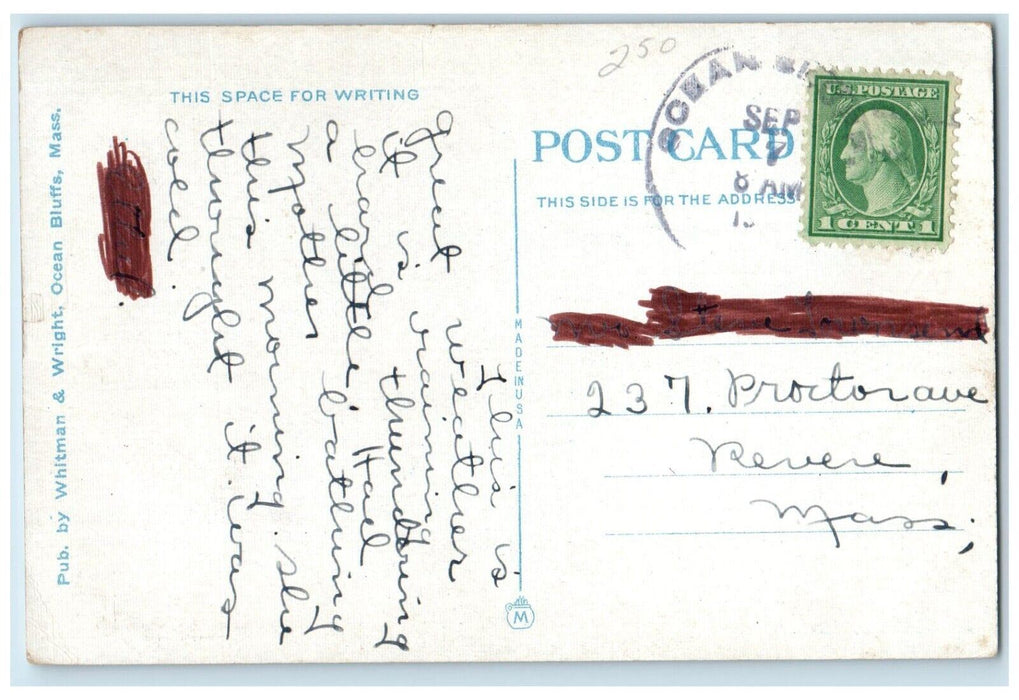 250
OCEAN
SEP
7
8 AM
U.S. POSTAGE
1 CENT 1
THIS SPACE FOR WRITING
POST CARD
THIS SIDE IS FOR THE ADDRESS
Pub. by Whitman & Wright, Ocean Bluffs, Mass.
MADE IN USA
M
This is
great weather
it is raining
hard & thundering
a little Had
Mother bathing
this morning she
thought it was
cold.
237. Proctor ave
Revere,
Mass.